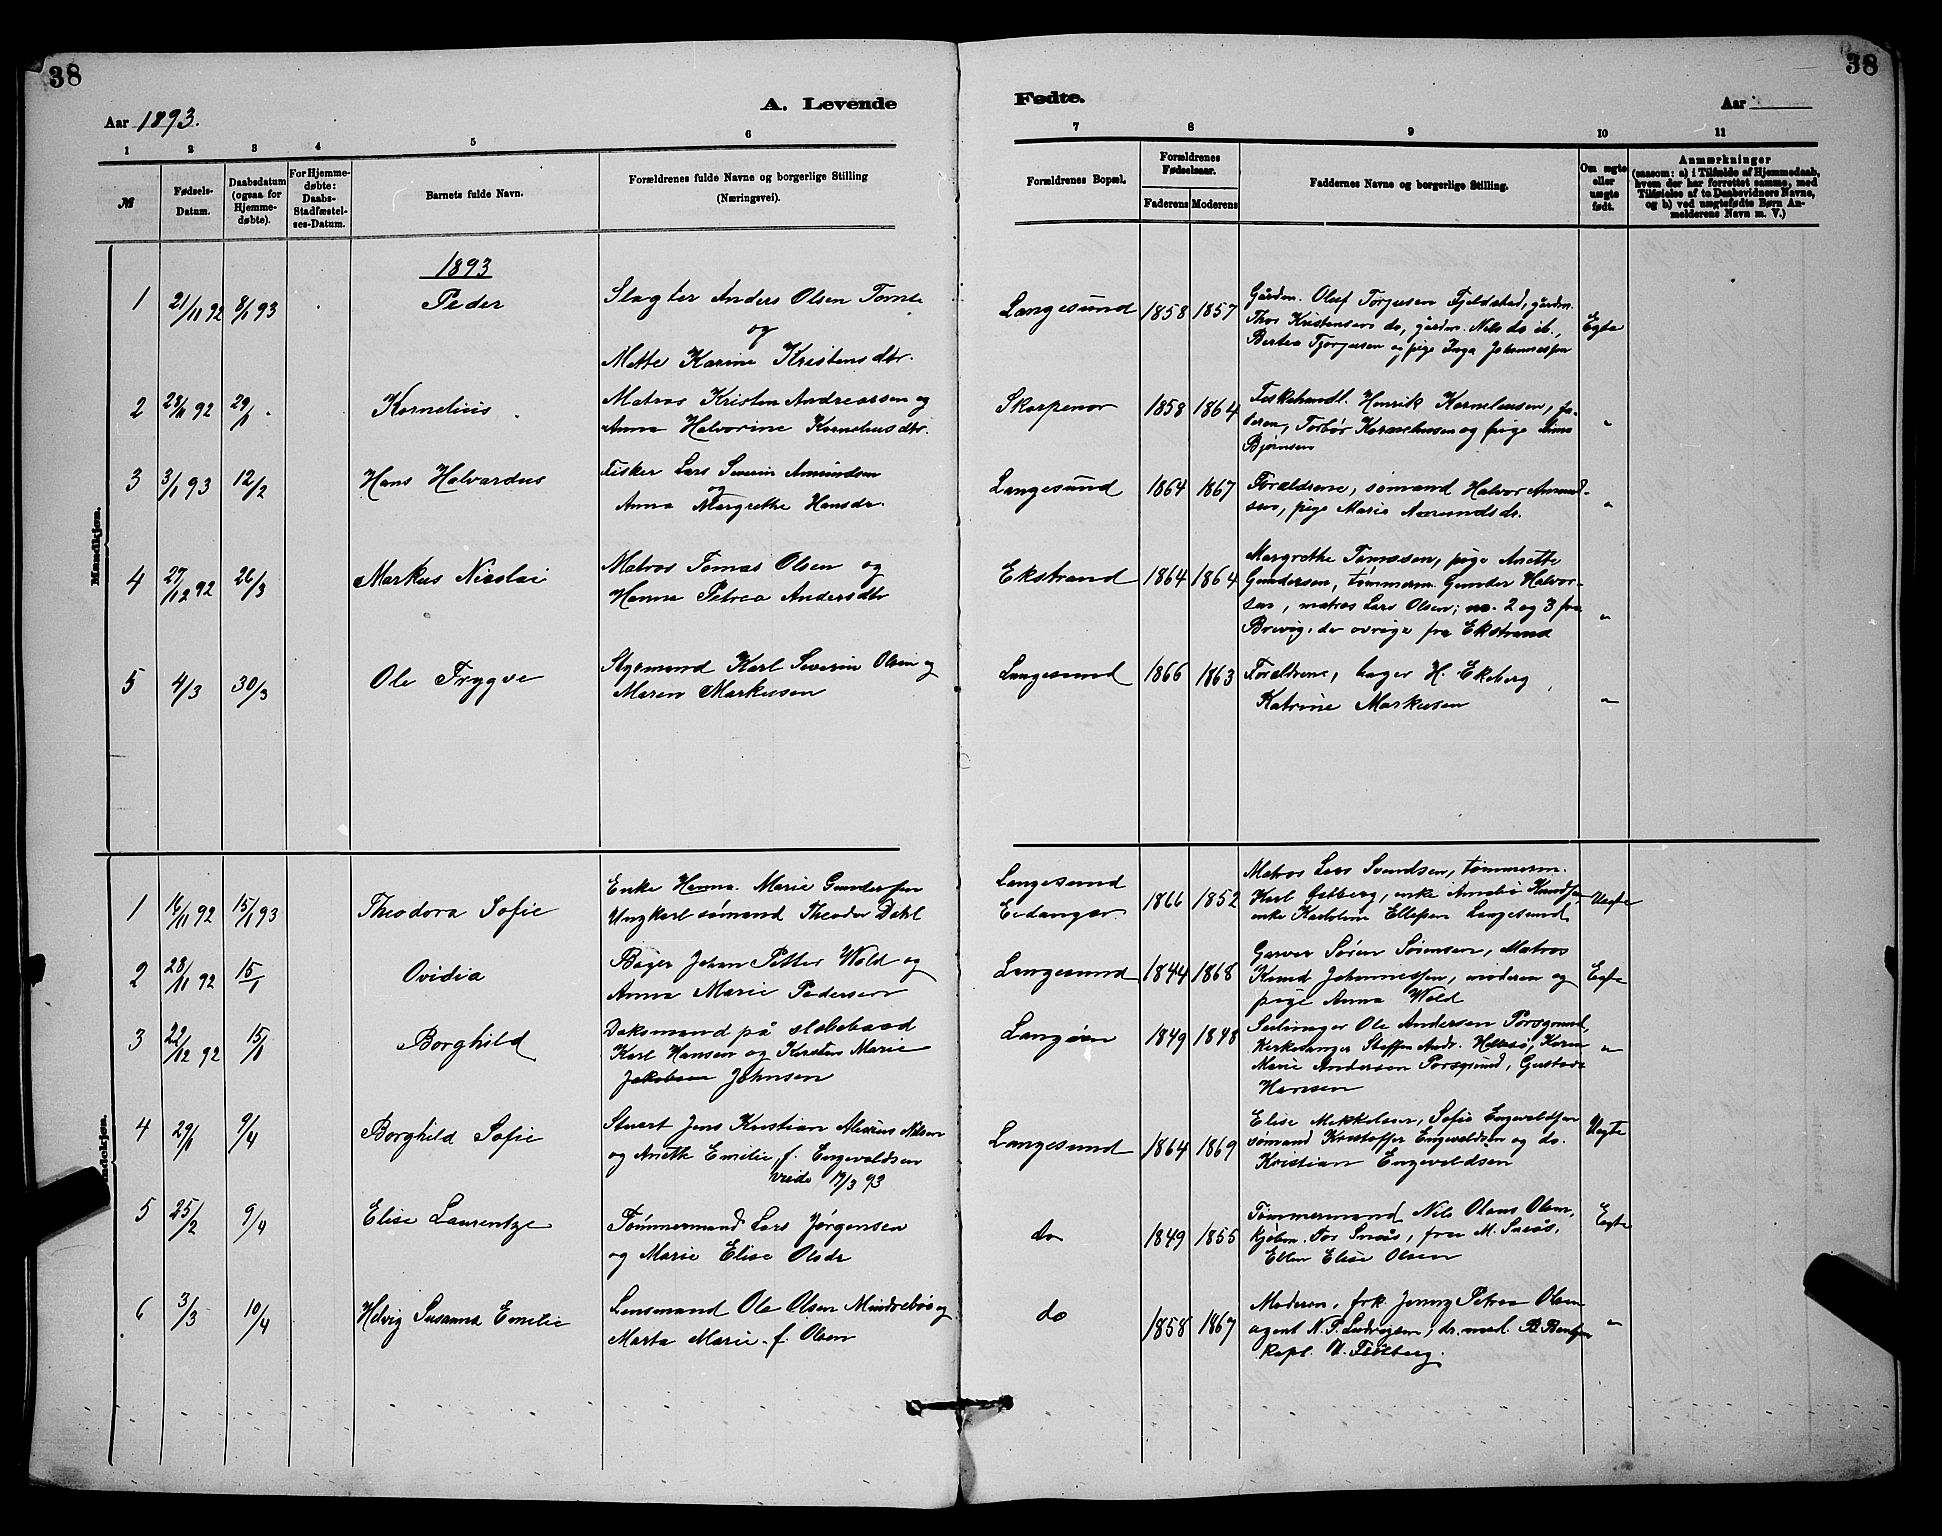 38
38
A. Levende
Fødte.
Aar 1893.
Aar
1 2 3 4 5 6 7 8 9 10 11
№
Fødsels-Datum.
Daabsdatum (ogsaa for Hjemme-døbte).
For Hjemme-døbte: Daabs-Stadfæstel-ses-Datum.
Barnets fulde Navn.
Forældrenes fulde Navne og borgerlige Stilling
(Næringsvei).
Forældrenes Bopæl.
Forældrenes Fødselsaar.
Faderens Moderens
Faddernes Navne og borgerlige Stilling.
Om ægte eller uægte født.
Anmærkninger
(saasom: a) i Tilfælde af Hjemmedaab,
hvem der har forrettet samme, med
Tilføielse af to Daabsvidners Navne,
og b) ved uægtefødte Børn An-
melderens Navn m. V.)
Mandkjøn.
1893
1 21/11 92 8/1 93 Peder
Slagter Anders Olsen Tomte
og
Mette Karine Kristensdtr.
Langesund 1858 1857
Gårdm. Oluf Torjusen Fjeldstad, gårdm.
Thor Kristensen do, gårdm. Nils do ib.,
Bertea Torjusen og pige Inga Johannessen
Egte
2 28/11 92 29/1 Kornelius
Matros Kristen Andreassen og
Anna Halvorine Korneliusdtr.
Skarpenor 1858 1864
Fiskehandl. Henrik Korneliusen, fa-
deren, Torbør Korneliusen og pige
Bjørnsen
"
3 3/1 93 12/2 Hans Halvardus
Fisker Lars Severin Amundsen
og
Anna Margrethe Hansdr.
Langesund 1864 1867
Forældrene, sømand Halvor Amund-
sen, pige Marie Amundsdr.
"
4 27/12 92 26/3 Markus Nicolai
Matros Tomas Olsen og
Hanna Petrea Andersdtr
Ekstrand 1864 1864
Margrethe Tomassen, pige Anette
Gundersen, tømmerm. Gunder Halvor-
sen, matros Lars Olsen; no. 2 og 3 fra
Brevig, de øvrige fra Ekstrand
"
5 4/3 30/3 Ole Trygve
Styrmand Karl Severin Olsen og
Maren Markussen
Langesund 1866 1863
Forældrene, bager H. Ekeberg
Katrine Markusen
"
1 16/11 92 15/1 93 Theodora Sofie
Enke Hanna Marie Gundersen
Ungkarl sømand Theodor Dahl
Langesund
Eidanger 1866 1852
Matros Lars Svendsen, tømmerm.
Karl Galberg, enke Annebø Knudsen,
enke Karlstine Ellefsen Langesund
Uegte
2 28/11 92 15/1 Ovidia
Bager Johan Petter Wold og
Anna Marie Pedersen
Langesund 1844 1868
Garver Søren Sørensen, Matros
Knud Johannessen, moderen og
pige Anna Wold
Egte
3 22/12 92 15/1 Borghild
Doksmand på slæbebaad
Karl Hansen og Karsten Marie
Jakobsen Johnsen
Langøen 1849 1848
Seilmager Ole Andersen Porsgrund,
Kirkesanger Steffen Andr. Hellesø, Karen
Marie Andersen Porsgrund, Gustava
Hansen
"
4 29/1 9/4 Borghild Sofie
Stuert Jens Kristian Marius Nilsen
og Anette Emilie, f. Engevoldsen
Viede 17/3 93
Langesund 1864 1869
Elise Mekkelsen, Sofie Engevoldsen
sømand Kristoffer Engevoldsen og do.
Kristian Engevoldsen
Uegte
5 25/2 9/4 Elise Laurentze
Tømmermand Lars Jørgensen
og Marie Elise Olsdr
do 1849 1855
Tømmermand Nils Olaus Olsen,
kjøbm. Tor Sneås, frue M. Sneås,
Ellen Elise Olsen
Egte
6 3/3 10/4 Helvig Susanna Emilie
Lensmand Ole Olsen Mindrebøe og
Marta Marie f. Olsen
do 1858 1867
Moderen, frk. Jenny Petrea Olsen
agent N. P. Ludvigsen, dr. med. B. Bentzen
kapl. N. Fløtberg.
"